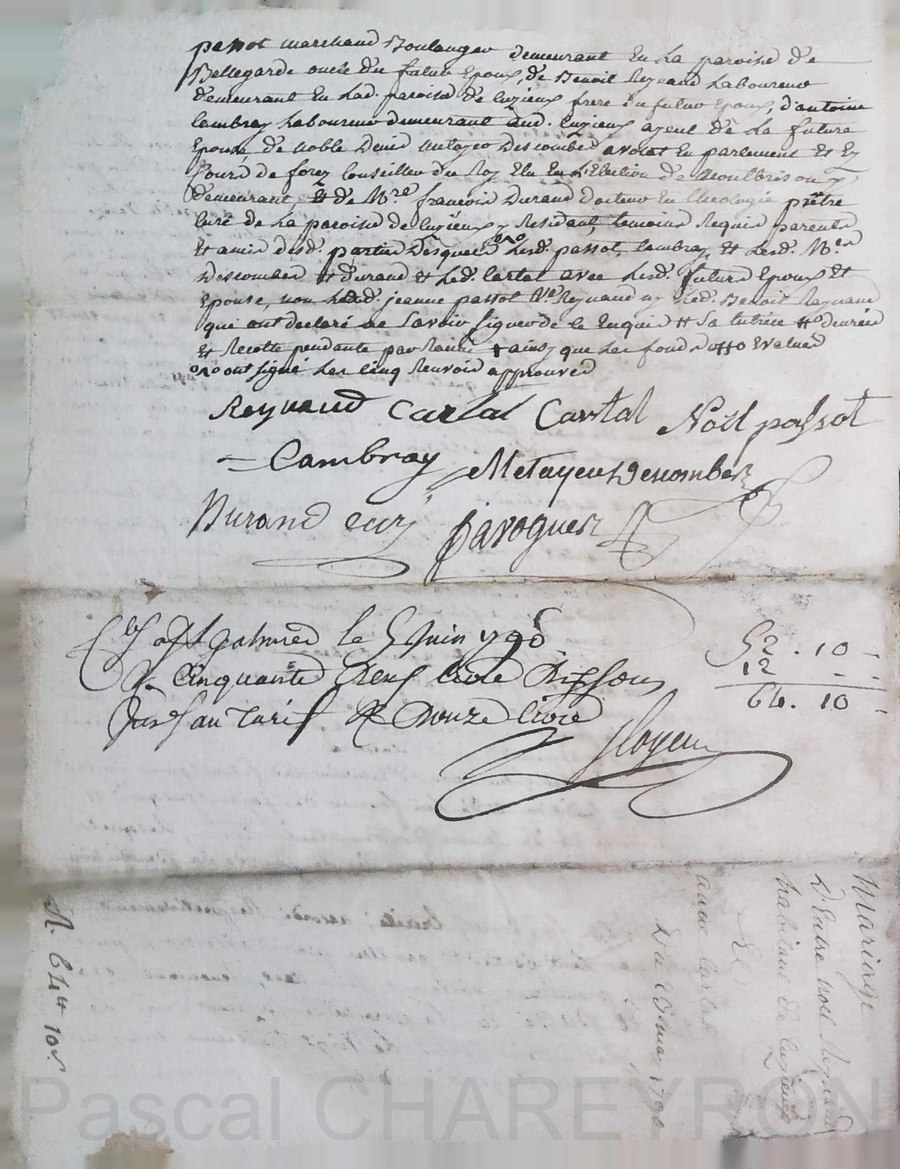 passot marchand Boulanger demeurant en la paroise de
Bellegarde oncle du futur Epoux, de Benoit Reynaud Laboureur
demeurant en lad. paroise de Cuzieux frere du futur Epoux, d'antoine
Cambray Laboureur demeurant aud. Cuzieux ayeul de La future
Epouse de Noble Denis metayer Descombes avocat en parlement et
de forez Conseiller du Roy Elu en L'Election de Montbrison y
demeurant et de Mre francois Durand Docteur en theologie prêtre
Curé de La paroise de Cuzieux y Residant, temoins Requis parents
et amis desd. parties Desquels Lesd. passot, Cambray, et Lesd. Mrs
Descombes et Durand et Led. Cartal avec Lesd. futurs Epoux et
Epouse, non Lad. jeanne passot Ve Reynaud ny Led. Benoit Reynaud
qui ont declaré ne Savoir signer de ce Enquis # Sa tutrice #o denrées
et Recolte pendante par Racine + ainsy que Les fonds o#o Evalués
ont signé Les Cinq Renvois approuvés
Reynaud Cartal Cartal Noël passot
Cambray Metayer Descombes
Durand curé Baroguer
galmier le 5 Juin 1790
R. Cinquante Deux livre Dix sous
au Tarif R Douze livre
52 . 10 -
12 . -
64 . 10 -
R. 64# 10s
Mariage
D'Entre noël Reynaud
habitant de Cuzieux
Et
anne Cartal
Du may 1790
Pascal CHAREYRON